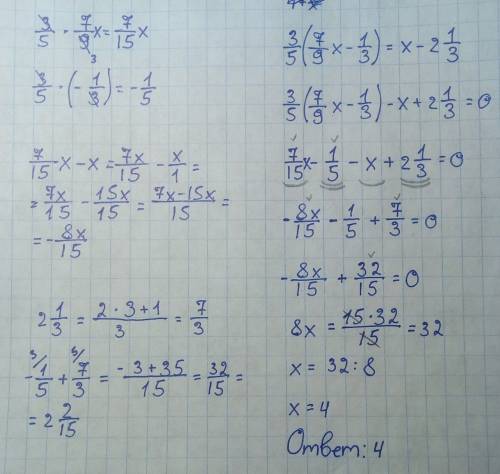 3/5 · 7/9 x = 7/15 x
3
3/5 · (- 1/3) = - 1/5
7/15 · x - x = 7x/15 - x/1 =
= 7x/15 - 15x/15 = 7x-15x/15 =
= - 8x/15
2 1/3 = 2·3+1/3 = 7/3
- 3/ 1/5 + 5/ 7/3 = -3+35/15 = 32/15 =
= 2 2/15
3/5 (7/9 x - 1/3) = x - 2 1/3
3/5 (7/9 x - 1/3) - x + 2 1/3 = 0
7/15 x - 1/5 - x + 2 1/3 = 0
- 8x/15 - 1/5 + 7/3 = 0
- 8x/15 + 32/15 = 0
8x = 15·32/15 = 32
x = 32 : 8
x = 4
Ответ: 4